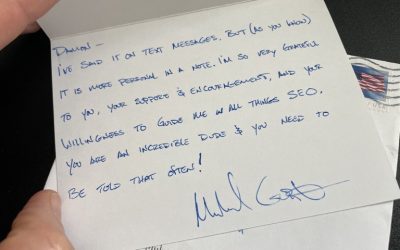 DAMON –
I'VE SAID IT ON TEXT MESSAGES, BUT (AS YOU KNOW)
IT IS MORE PERSONAL IN A NOTE. I'M SO VERY GRATEFUL
TO YOU, YOUR SUPPORT & ENCOURAGEMENT, AND YOUR
WILLINGNESS TO GUIDE ME IN ALL THINGS SEO.
YOU ARE AN INCREDIBLE DUDE & YOU NEED TO
BE TOLD THAT OFTEN!